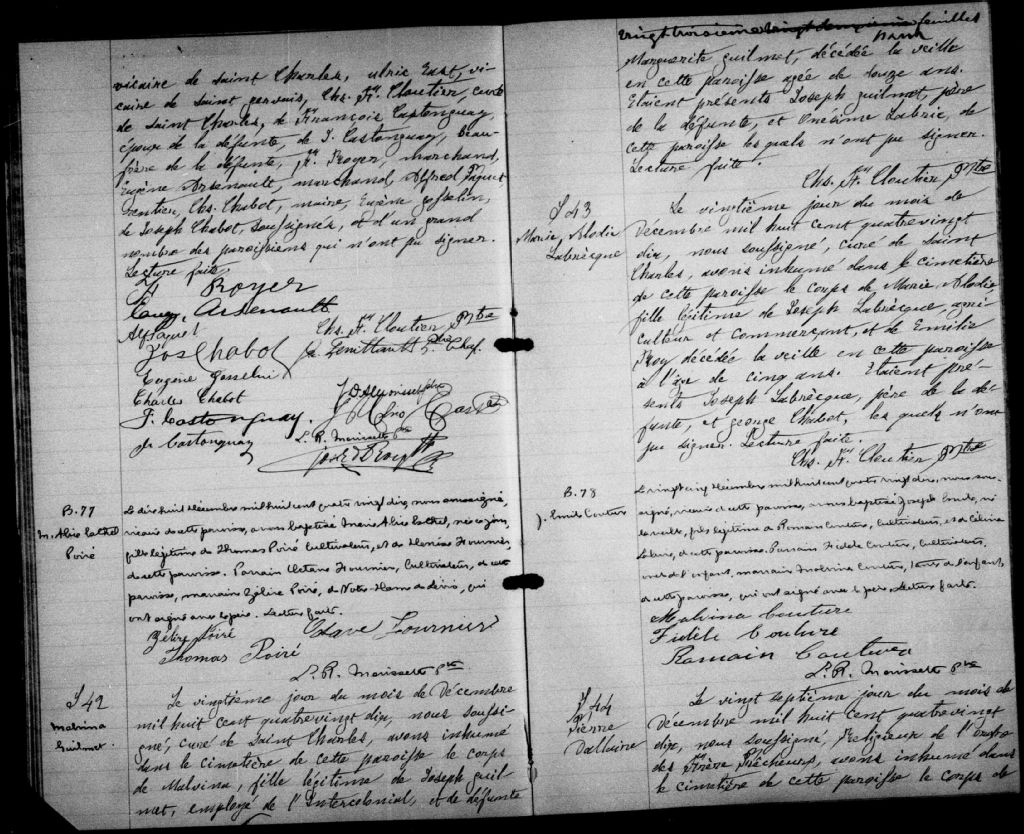 vicaire de Saint Charles, ulric East, vi-
caire de Saint Gervais, Chs. Frs. Cloutier, curé
de Saint Charles, de François Castonguay,
époux de la défunte, de J. Castonguay, beau-
frère de la défunte, Roger, marchand,
Eugène Arsenault, marchand, Alfred Paquet,
rentier, Chs. Chabot, maire, Eugène Gosselin,
de Joseph Chabot, soussignés, et d'un grand
nombre des paroissiens qui n'ont pu signer.
Lecture faite
Royer
Eug. Arsenault
Alf Paquet
Chs. Frs. Cloutier Ptre
Jos Chabot
Eugène Gosselin
Charles Chabot
F. Castonguay.
J. Castonguay
L. R. Morissette Ptre
B. 77
M. Alice
Poiré
Le dix huit décembre mil huit cent quatre vingt dix, nous soussigné,
vicaire de cette paroisse, avons baptisé Marie Alice née ce jour,
fille légitime de Thomas Poiré cultivateur, et de Fournier,
de cette paroisse. Parrain Octave Fournier, cultivateur, de cette
paroisse, marraine Zélire Poiré, de Notre Dame de Lévis, qui
ont signé avec le père. Lecture faite.
Zélire Poiré Octave Fournier
Thomas Poiré
L. R. Morissette Ptre
S 42
Malvina
Guilmet.
Le vingtième jour du mois de Décembre
mil huit cent quatrevingt dix, nous soussi-
gné, curé de Saint Charles, avons inhumé
dans le cimetière de cette paroisse le corps
de Malvina, fille légitime de Joseph Guil
met, employé de l'Intercolonial, et de défunte
vingt troisième vingt deuxième feuillet
Marguerite Guilmet, décédée la veille
en cette paroisse agée de douze ans.
Etaient présents Joseph Guilmet, père
de la défunte, et Onésime Labrie, de
cette paroisse lesquels n'ont pu signer.
Lecture faite.
Chs. Frs. Cloutier Ptre
S 43
Marie, Alodie
Labrecque
Le vingtième jour du mois de
Décembre mil huit cent quatrevingt
dix, nous soussigné, curé de Saint
Charles, avons inhumé dans le cimetière
de cette paroisse le corps de Marie Alodie,
fille légitime de Joseph Labrecque, agri
culteur et commerçant, et de Emilie
Roy décédée la veille en cette paroisse
à l'âge de cinq ans. Etaient pré-
sents Joseph Labrecque, père de la dé-
funte, et George Chabot, lesquels n'ont
pu signer. Lecture faite.
Chs. Frs. Cloutier Ptre
B. 78
J. Emile Couture
Le vingt cinq décembre mil huit cent quatre vingt dix, nous sous-
signé, vicaire de cette paroisse, avons baptisé Joseph Emile, né
la veille, fils légitime de Romain Couture, cultivateur, et de Célina
de cette paroisse. Parrain Fidèle Couture, cultivateur,
oncle de l'enfant, marraine Malvina Couture, tante de l'enfant,
de cette paroisse, qui ont signé avec le père. Lecture faite.
Malvina Couture
Fidèle Couture
Romain Couture
L. R. Morissette Ptre
S 44
Pierre
Dallaire
Le vingt septième jour du mois de
Décembre mil huit cent quatrevingt
dix, nous soussigné, Religieux de l'Ordre
des Frères Prêcheurs, avons inhumé dans
le cimetière de cette paroisse le corps de